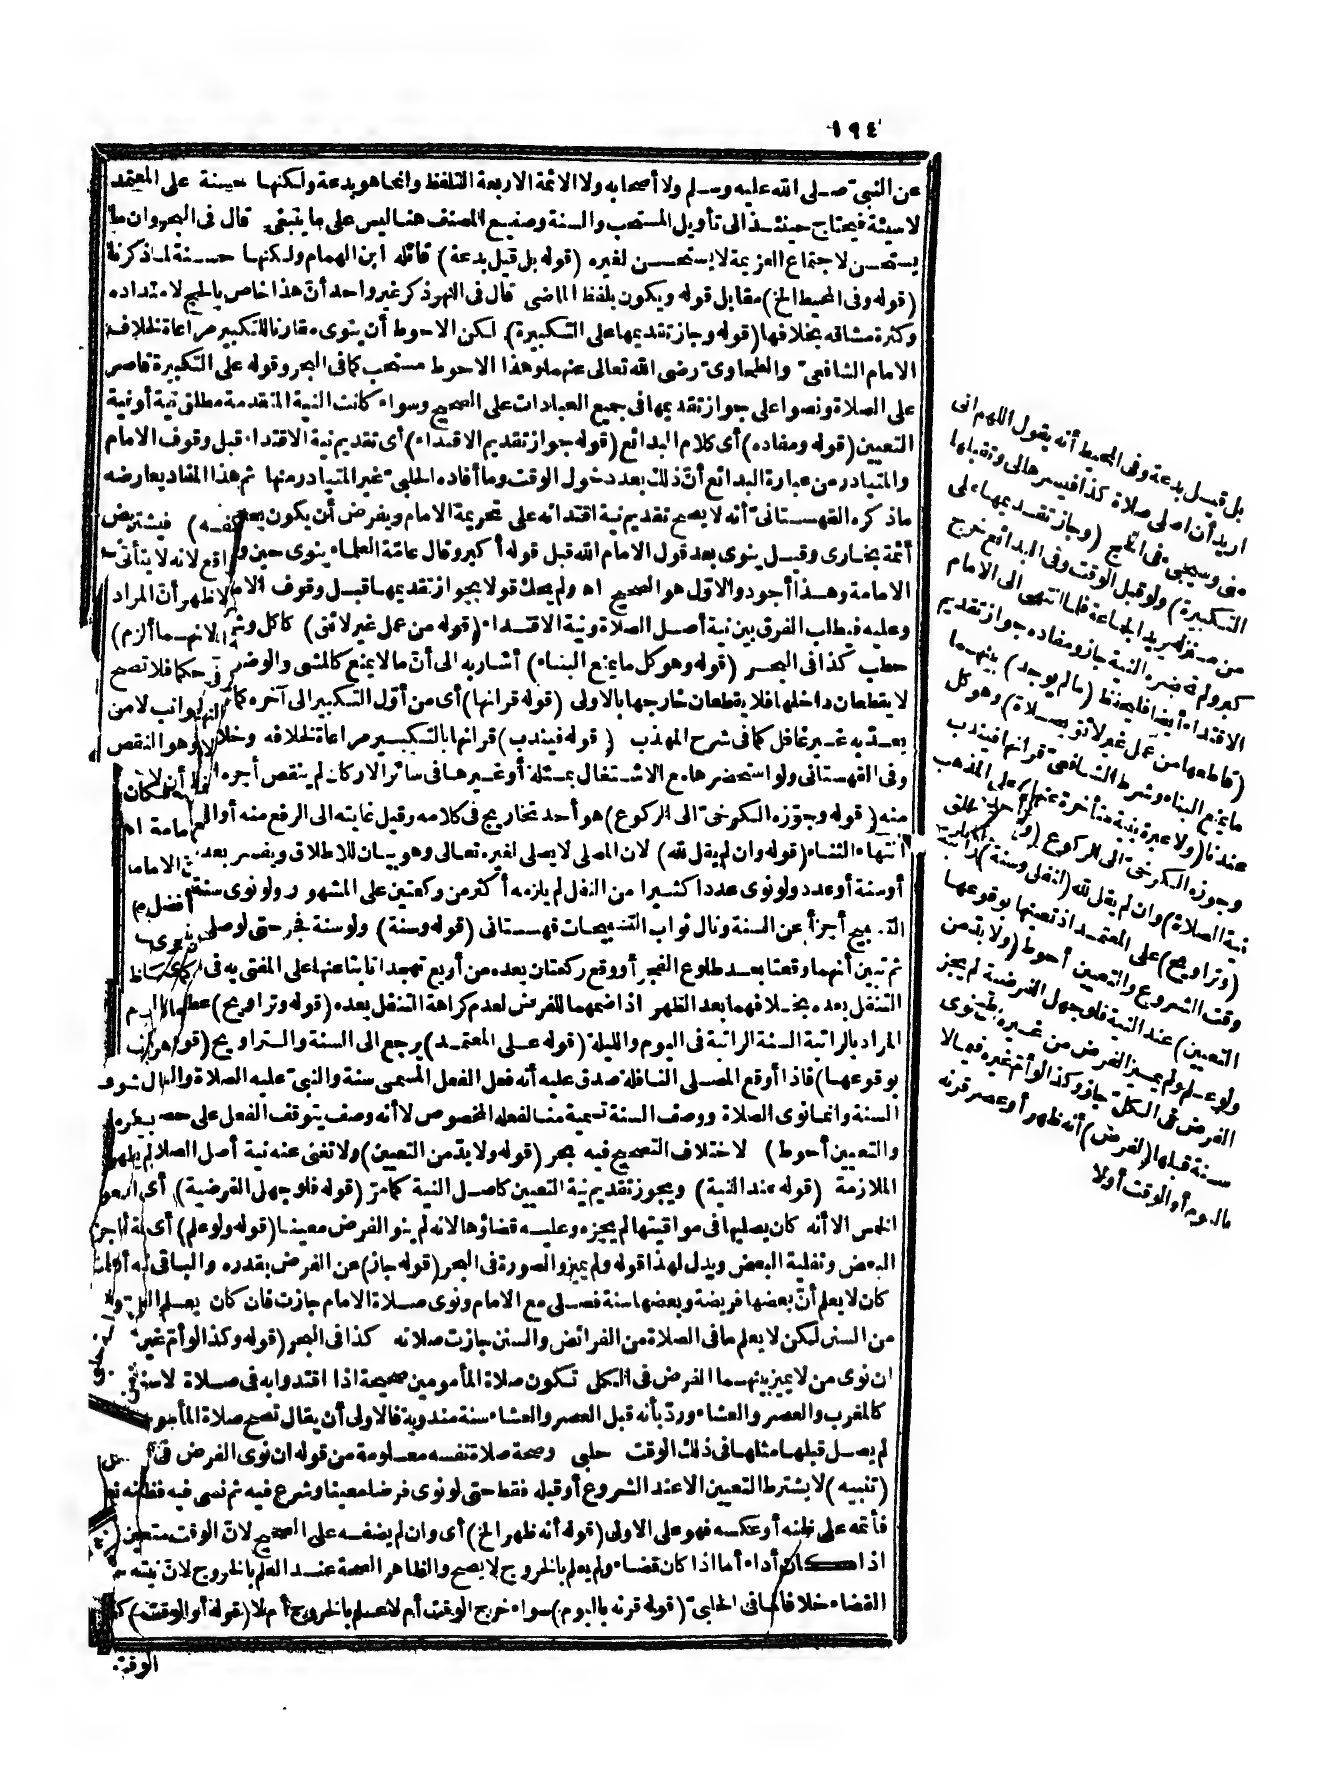 ١٩٤
عن النبيّ صلى الله عليه وسلم ولا أصحابه ولا الائمة الاربعة التلفظ وانما هو بدعة ولكنها حسنة على المعتمد
لا سيئة فيحتاج حينئذ الى تأويل المستحب والسنة وصنيع المصنف هنا ليس على ما ينبغى قال فى البحر وان ما
يستحسن لاجتماع العزيمة لا يستحسن لغيره (قوله بل قيل بدعة) قائله ابن الهمام ولكنها حسنة لما ذكرنا
(قوله وفى المحيط الخ) مقابل قوله ويكون بلفظ الماضى قال فى النهر ذكر غير واحد أنّ هذا خاص بالحج لامتداده
وكثرة مشاقه بخلافها (قوله وجاز تقديمها على التكبيرة) لكن الاحوط أن ينوى مقارنا للتكبير مراعاة لخلاف
الامام الشافعىّ والطحاوىّ رضى الله تعالى عنهما وهذا الاحوط مستحب كما فى البحر وقوله على التكبيرة قاصر
على الصلاة ونصوا على جواز تقديمها فى جميع العبادات على الصحيح وسواء كانت النية المتقدمة مطلق نية أو نية
التعيين (قوله ومفاده) أى كلام البدائع (قوله جواز تقديم الاقتداء) أى تقديم نية الاقتداء قبل وقوف الامام
والمتبادر من عبارة البدائع أنّ ذلك بعد دخول الوقت وما أفاده الحلبىّ غير المتبادر منها ثم هذا المفاد يعارضه
ماذكره القهستانىّ أنه لا يصح تقديم نية اقتدائه على تحريمة الامام ويفرض أن يكون بعد
أئمة بخارى وقيل ينوى بعد قول الامام الله قبل قوله أكبر وقال عامّة العلماء ينوى حين
الامامة وهذا أجود والاول هو الصحيح اه ولم يحك قولا بجواز تقديمها قبل وقوف
وعليه فيطلب الفرق بين نية أصل الصلاة ونية الاقتداء (قوله من عمل غير لائق) كاكل وشرب
حطب كذا فى البحر (قوله وهو كل ما يمنع البناء) أشار به الى أنّ ما لا يمنع كالمشى والوضوء
لا يقطعان داخلها فلا يقطعان خارجها بالاولى (قوله قرانها) أى من أوّل التكبير الى آخره
يعتدّ به غير غافل كما فى شرح المهذب (قوله فيندب) قرانها بالتكبير مراعاة لخلافه
وفى القهستانى ولو استحضرها مع الاشتغال بمسئلة أو غيرها فى سائر الاركان لم ينقص أجره
منه (قوله وجوّزه الكرخىّ الى الركوع) هو أحد تخاريج فى كلامه وقيل غايته الى الرفع منه أو
انتهاء الثناء (قوله وان لم يقل لله) لان المصلى لا يصلى لغيره تعالى وهو بيان للاطلاق ويفسر بعد
أو سنة أو عدد ولو نوى عددا كثيرا من النفل لم يلزمه أكثر من ركعتين على المشهور ولو نوى سنة
أجزأ عن السنة ونال ثواب التسبيحات قهستانى (قوله وسنة) ولو سنة فجر حتى لو صلى
ثم تبين أنهما وقعتا بعد طلوع الفجر أو وقع ركعتان بعده من أربع تهجدا نابتا عنها على المفتى به
التنفل بعده بخلافهما بعد الظهر اذا ضمهما للفرض لعدم كراهة التنفل بعده (قوله وتراويح)
المراد بالراتبة السنة الراتبة فى اليوم والليلة (قوله على المعتمد) يرجع الى السنة والتراويح
بوقوعها) فاذا أوقع المصلى النافلة صدق عليه أنه فعل الفعل المسمى سنة والنبىّ عليه الصلاة
السنة وانما نوى الصلاة ووصف السنة تسمية منا لفعله المخصوص لا أنه وصف يتوقف الفعل على
والتعيين أحوط) لاختلاف التصحيح فيه بحر (قوله ولا بدّ من التعيين) ولا تغنى عنه نية أصل
الملازمة (قوله عند النية) ويجوز تقديم نية التعيين كاصل النية كما مرّ (قوله فلو جهل الفرضية) أى
الخمس الا أنه كان يصليها فى مواقيتها لم يجزه وعليه قضاؤها لانه لم ينو الفرض معينا (قوله ولو علم) أى
البعض ونفلية البعض ويدل لهذا قوله ولم يميز والصورة فى البحر (قوله جاز) عن الفرض بقدره والباقى
كان لا يعلم أنّ بعضها فريضة وبعضها سنة فصلى مع الامام ونوى صلاة الامام جازت فان كان يعلم
من السنن لكن لا يعلم ما فى الصلاة من الفرائض والسنن جازت صلاته كذا فى البحر (قوله وكذا لو أم غيره
ان نوى من لا يميز بينهما الفرض فى الكل تكون صلاة المأمومين صحيحة اذا اقتدوا به فى صلاة لا سنة
كالمغرب والعصر والعشاء وردّ بأنه قبل العصر والعشاء سنة مندوبة فالاولى أن يقال تصح صلاة
لم يصل قبلها مثلها فى ذلك الوقت حلبى وصحة صلاة نفسه معلومة من قوله ان نوى الفرض فى
(تنبيه) لا يشترط التعيين الا عند الشروع أو قبله فقط حتى لو نوى فرضا معينا وشرع فيه ثم نسى فيه فظنه
فأتمه على ظنه أو عكسه فهو على الاولى (قوله أنه ظهر الخ) أى وان لم يضفه على الصحيح لانّ الوقت متعين
اذا كان أداء أما اذا كان قضاء ولم يعلم بالخروج لا يصح والظاهر الصحة عند العلم بالخروج لانّ نيته
القضاء خلافا لما فى الحلبىّ (قوله قرنه باليوم) سواء خرج الوقت أم لا علم بالخروج أم لا (قوله أو الوقت)
الوقت
بل قيل بدعة وفى المحيط أنه يقول اللهم انى
اريد أن اصلى صلاة كذا فيسرها لى وتقبلها
منى وسيجىء فى الحج (وجاز تقديمها على
التكبيرة) ولو قبل الوقت وفى البدائع خرج
من منزله يريد الجماعة فلما انتهى الى الامام
كبر ولم تحضره النية جاز ومفاده جواز تقديم
الاقتداء أيضا فليحفظ (ما لم يوجد) بينهما
(قاطعها من عمل غير لائق بصلاة) وهو كل
ما يمنع البناء وشرط الشافعىّ قرانها فيندب
عندنا (ولا عبرة بنية متأخرة عنها) على المذهب
وجوزه الكرخىّ الى الركوع
نية الصلاة) وان لم يقل لله (لنفل وسنة) راتبة
(وتراويح) على المعتمد اذ تعيينها بوقوعها
وقت الشروع والتعيين أحوط (ولا بد من
التعيين) عند النية فلو جهل الفرضية لم يجز
ولو علم ولم يميز الفرض من غيره ان نوى
الفرض فى الكل جاز وكذا لو أم غيره فيما لا
سنة قبلها (لفرض) أنه ظهر أو عصر قرنه
باليوم أو الوقت أو لا